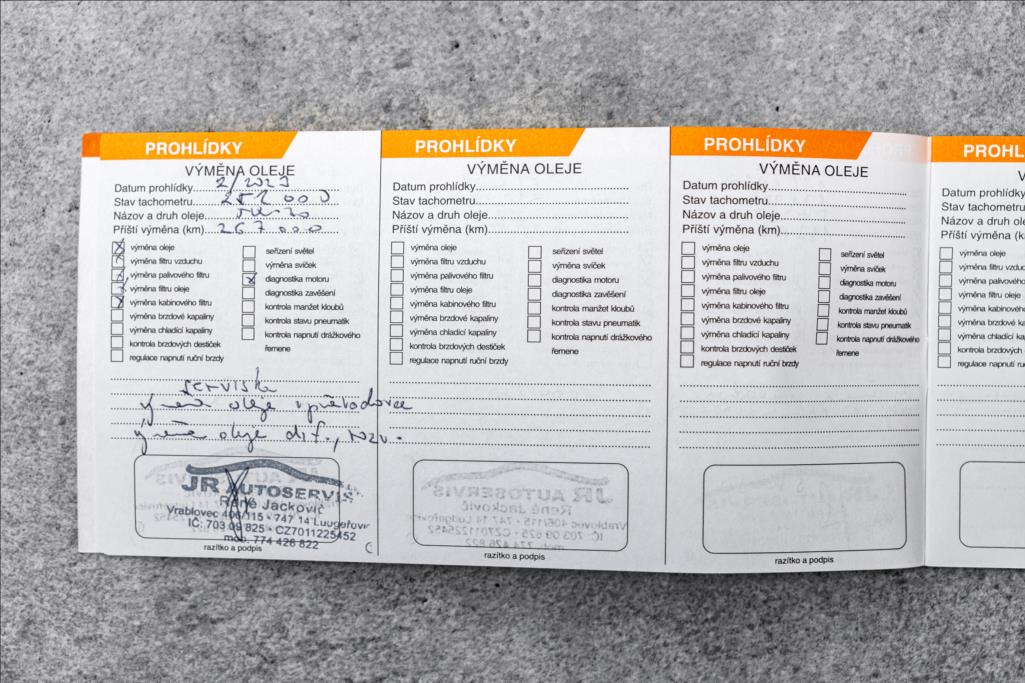 PROHLÍDKY
VÝMĚNA OLEJE
Datum prohlídky 2/2023
Stav tachometru 252 000
Názov a druh oleje 5W-30
Příští výměna (km) 267 000
výměna oleje
výměna filtru vzduchu
výměna palivového filtru
výměna filtru oleje
výměna kabinového filtru
výměna brzdové kapaliny
výměna chladící kapaliny
kontrola brzdových destiček
regulace napnutí ruční brzdy
seřízení světel
výměna svíček
diagnostika motoru
diagnostika zavěšení
kontrola manžet kloubů
kontrola stavu pneumatik
kontrola napnutí drážkového
řemene
serviska
oleje
oleje dif.,
JR AUTOSERVIS
René Jackovič
Vrablovec 406/115 - 747 14 Ludgeřovice
IČ: 703 09 825 - CZ7011225452
mob. 774 426 822
razítko a podpis
PROHLÍDKY
VÝMĚNA OLEJE
Datum prohlídky
Stav tachometru
Názov a druh oleje
Příští výměna (km)
výměna oleje
výměna filtru vzduchu
výměna palivového filtru
výměna filtru oleje
výměna kabinového filtru
výměna brzdové kapaliny
výměna chladící kapaliny
kontrola brzdových destiček
regulace napnutí ruční brzdy
seřízení světel
výměna svíček
diagnostika motoru
diagnostika zavěšení
kontrola manžet kloubů
kontrola stavu pneumatik
kontrola napnutí drážkového
řemene
razítko a podpis
PROHLÍDKY
VÝMĚNA OLEJE
Datum prohlídky
Stav tachometru
Názov a druh oleje
Příští výměna (km)
výměna oleje
výměna filtru vzduchu
výměna palivového filtru
výměna filtru oleje
výměna kabinového filtru
výměna brzdové kapaliny
výměna chladící kapaliny
kontrola brzdových destiček
regulace napnutí ruční brzdy
seřízení světel
výměna svíček
diagnostika motoru
diagnostika zavěšení
kontrola manžet kloubů
kontrola stavu pneumatik
kontrola napnutí drážkového
řemene
razítko a podpis
PROHL
V
Datum prohlídky
Stav tachometru
Názov a druh ole
Příští výměna (km)
výměna oleje
výměna filtru vzd
výměna palivového
výměna filtru oleje
výměna kabinového
výměna brzdové k
výměna chladící ka
kontrola brzdových
regulace napnutí ru